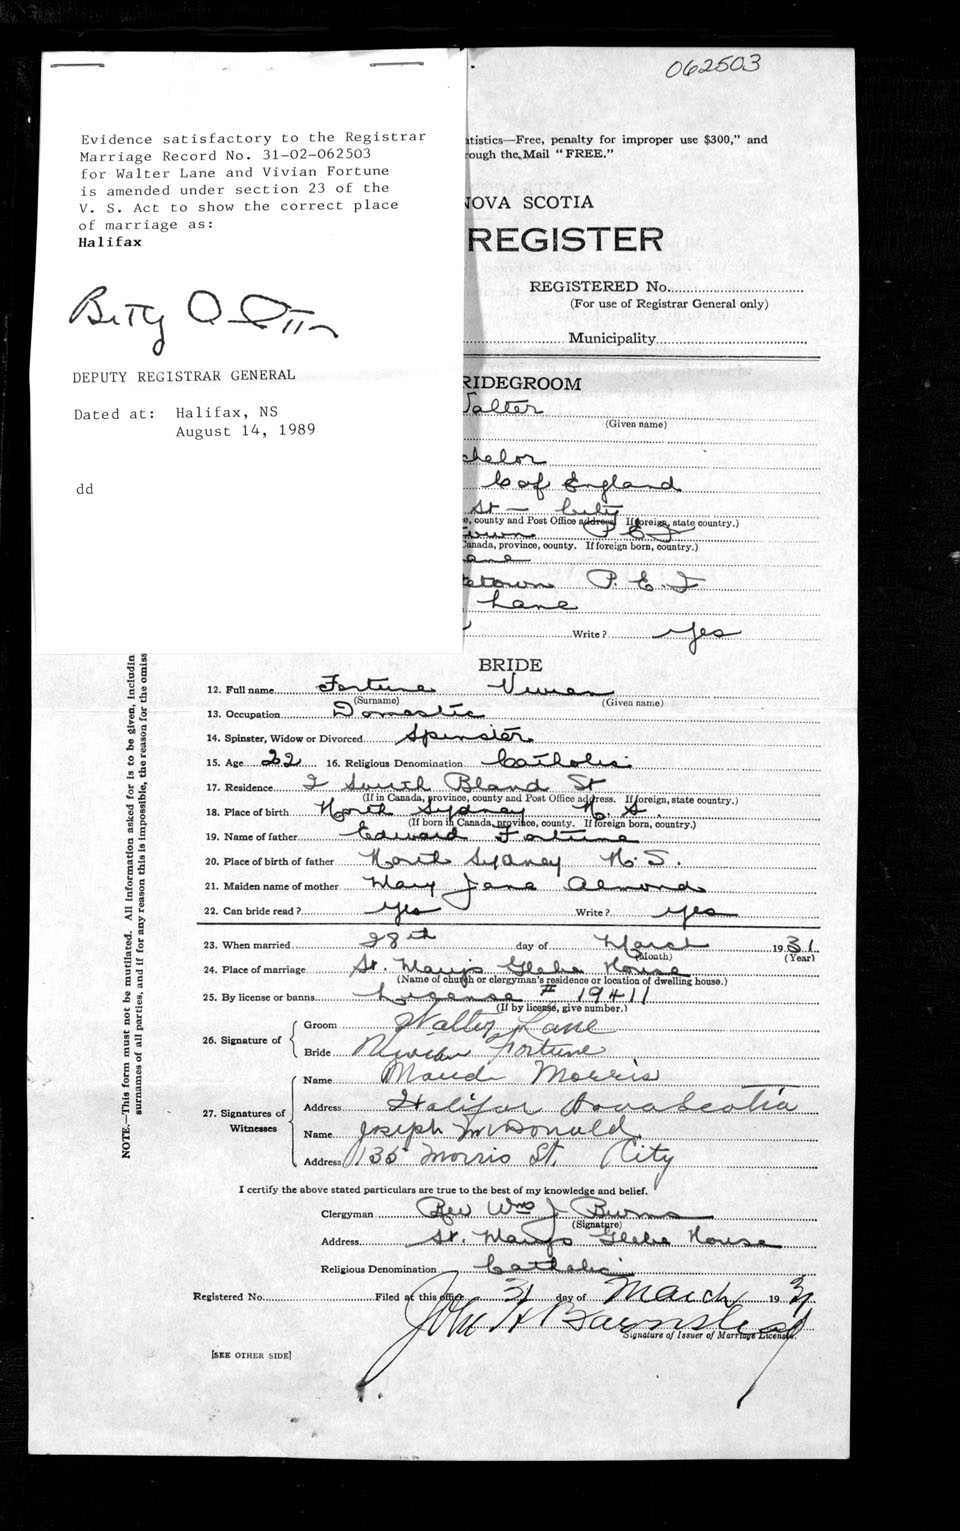 062503
Evidence satisfactory to the Registrar
Marriage Record No. 31-02-062503
for Walter Lane and Vivian Fortune
is amended under section 23 of the
V. S. Act to show the correct place
of marriage as:
Halifax
DEPUTY REGISTRAR GENERAL
Dated at: Halifax, NS
August 14, 1989
dd
atistics—Free, penalty for improper use $300," and
rough the Mail "FREE."
NOVA SCOTIA
REGISTER
REGISTERED No.
(For use of Registrar General only)
Municipality
RIDEGROOM
Walter
(Given name)
chelor
C of England
St - City
e, county and Post Office address. If foreign, state country.)
town P E I
Canada, province, county. If foreign born, country.)
ane
etown P. E. I
Lane
Write? yes
BRIDE
12. Full name Fortune Vivian
(Surname) (Given name)
13. Occupation Domestic
14. Spinster, Widow or Divorced Spinster
15. Age 22 16. Religious Denomination Catholic
17. Residence 2 South Bland St
(If in Canada, province, county and Post Office address. If foreign, state country.)
18. Place of birth North Sydney N. S.
(If born in Canada, province, county. If foreign born, country.)
19. Name of father Edward Fortune
20. Place of birth of father North Sydney N. S.
21. Maiden name of mother Mary Jane Almond
22. Can bride read? yes Write? yes
23. When married 28th day of March 1931
(Month) (Year)
24. Place of marriage St. Mary's Glebe House
(Name of church or clergyman's residence or location of dwelling house.)
25. By license or banns License # 19411
(If by license, give number.)
26. Signature of Groom Walter Lane
Bride Vivian Fortune
27. Signatures of Witnesses Name Maude Morris
Address Halifax Nova Scotia
Name Joseph McDonald
Address 135 Morris St. City
I certify the above stated particulars are true to the best of my knowledge and belief.
Clergyman Rev Wm J Burns
(Signature)
Address St. Mary's Glebe House
Religious Denomination Catholic
Registered No. Filed at this office 31 day of March 1931
John H Barnstead
Signature of Issuer of Marriage Licenses.
[SEE OTHER SIDE]
NOTE.—This form must not be mutilated. All information asked for is to be given, includin
surnames of all parties, and if for any reason this is impossible, the reason for the omiss